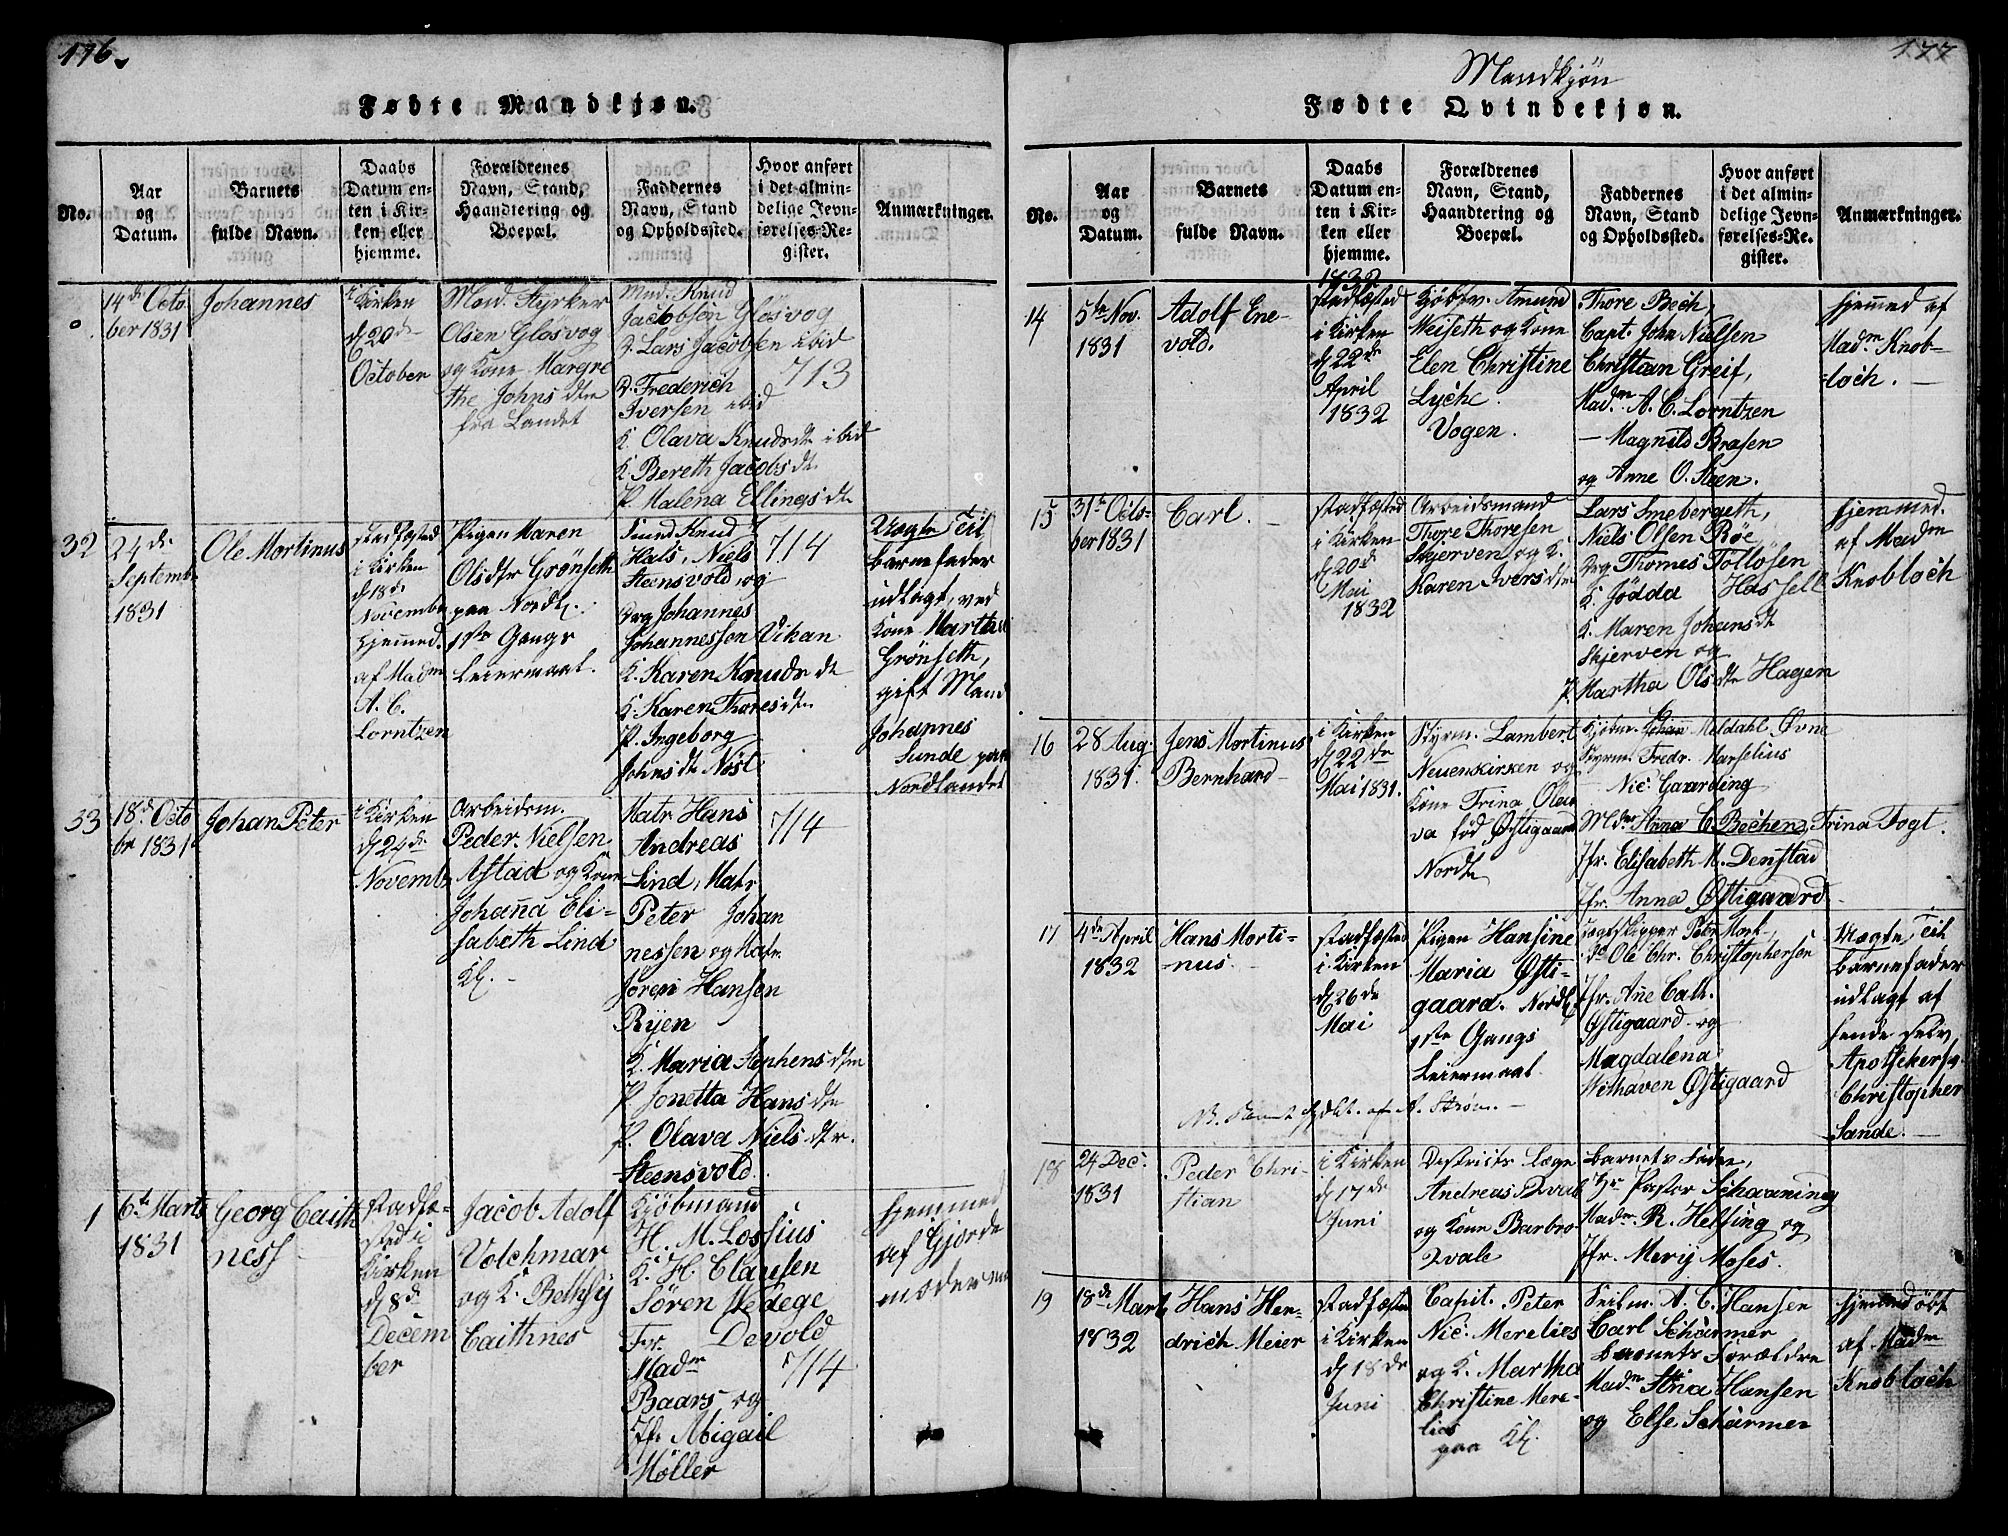 176.
Fødte Mandkjøn.
No.
Aar
og
Datum.
Barnets
fulde Navn.
Daabs
Datum en-
ten i Kir-
ken eller
hjemme.
Forældrenes
Navn, Stand,
Haandtering og
Boepæl.
Faddernes
Navn, Stand
og Opholdssted.
Hvor anført
i det almin-
delige Jevn-
førelses-Re-
gister.
Anmærkninger.
14de Octo
ber 1831
Johannes
i Kirken
d 20de
October
Olsen Glosvog
og Kone Margre
the Johnsdtr
fra Landet
Knud
Jacobsen Glosvog
Lars Jacobsen ibid
D. Frederich
Iversen ibid
K. Olava Knudsdt ibid
K. Bereth Jacobsdt
P. Malena Ellingsdt
713
32
24de
Septemb.
1831
Ole Mortinus
stadfæsted
i Kirken
d 18de
Novembr
hjemmed.
af Madm
A. C.
Lorntzen
Pigen Maren
Olsdtr Grönseth
paa Nordl.
1ste Gangs
Leiermaal.
Knud
Hals, Niels
Steensvold, og
Johannes
Johannessen Vikan
K. Karen Knudsdt
K. Karen Thoresdtr
P. Ingeborg
Johnsdt Nöst
714
Uægte Teit
Barnefader
udlagt, ved
Kone Martha
Grönseth,
gift Mand
Johannes
Sunde paa
Nordlandet
33
18de Octo
br 1831
Johan Peter
i Kirken
d 24de
Novemb.
Arbeidsm.
Peder Nielsen
Astad og Kone
Johanna Eli-
sabeth Lind
Kl.
Matr Hans
Andreas
Lind, Matr
Peter Johan
nessen og Matr
Sören Hansen
Ryen
K. Maria Stephensdtr
P. Jonetta Hansdtr
P. Olava Nielsdtr.
Steensvold.
714
1
6te Marts
1831
Georg Caith
ness
stadfæ-
sted i
Kirken
d 8de
Decem
ber
Jacob Adolf
Volchmar
og K. Bethsy
Caithnes
Kjöbmand
H. M. Lossius
K. H. Clausen
Sören Wedege
For. Devold
Madm
Baars, og
Jfr. Abigail
Möller
714
hjemmed
af Gjorde
moder
177
Mandkjøn
Fødte Qvindekjøn.
No.
Aar
og
Datum.
Barnets
fulde Navn.
Daabs
Datum en-
ten i Kir-
ken eller
hjemme.
Forældrenes
Navn, Stand,
Haandtering og
Boepæl.
Faddernes
Navn, Stand
og Opholdssted.
Hvor anført
i det almin-
delige Jevn-
førelses-Re-
gister.
Anmærkninger.
14
5te Nov.
1831
Adolf Ene-
vold.
1832
stadfæsted
i Kirken
d 22de
April
1832
Kjöbm. Amund
Weiseth og Kone
Elen Christine
Lyche
Vogen.
Thore Bech,
Capt. John Nielsen
Christian Greif,
Madm. A. C. Lorntzen
— Magnild Brasen
og Anne O. Steen.
hjemmed af
Madm. Knob-
loch. —
15
31te Octo-
ber 1831
Carl. —
stadfæsted
i Kirken
d 20de
Mai
1832
Arbeidsmand
Thore Thoresen
Skjerven og K.
Karen Iversdtr
Lars Snebergeth,
Niels Olsen Röe,
Drg Thomes Tollösen
K. Jödda Hassell
K. Maren Johansdt
Skjerven og
P. Martha Olsdtr Hagen
hjemmed.
af Madm
Knobloch
16
28 Aug.
1831.
Jens Mortinus
Bernhard
i Kirken
d 22de
Mai 1831.
Styrm. Lambert
Neuenkirken og
Kone Trina Olea
va föd Östigaard
Nordl.
Kjöbm. Meldahl Övne
Styrm. Fredr. Marselius
Nic. Gaarding
Mdm Anna C. Bechen, Trina Fogt.
Jfr. Elisabeth M. Denstad
Jfr. Anna Östigaard.
17
4de April
1832
Hans Morti-
nus.
stadfæsted
i Kirken
d 26de
Mai
Pigen Hansine
Maria Östi-
gaard. Nordl.
1ste Gangs
Leiermaal.
Jagtskipper Petr Mort.,
do Ole Chr. Christophersen
Jfr. Ane Cath.
Östigaard og
Magdalena
Withaven Östigaard
Uægte, Teit
Barnefader
udlagt af
hende selv,
Apotheker
Christopher
Sande. —
18
24 Dec.
1831
Peder Chri-
stian
i Kirken
d 17de
Juni
Districts Læge
Andreas Qvale
og Kone Barbro
Qvale
Barnets Fader,
Hr Pastor Schanning
Madm. R. Helsing og
Jfr. Mery Moses.
19
18de Mart
1832
Hans Hen-
drich Meier
stadfæsted
i Kirken
d 18de
Juni
Capit. Peter
Nic: Merelies
og K. Martha
Christine Mere-
lies
paa Kl.
Seilm. A. C. Hansen
Carl Schärmer
Barnets Forældre
Madm. Stina Hansen
og Else Schärmer
hjemdöbt
af Madm
Knobloch